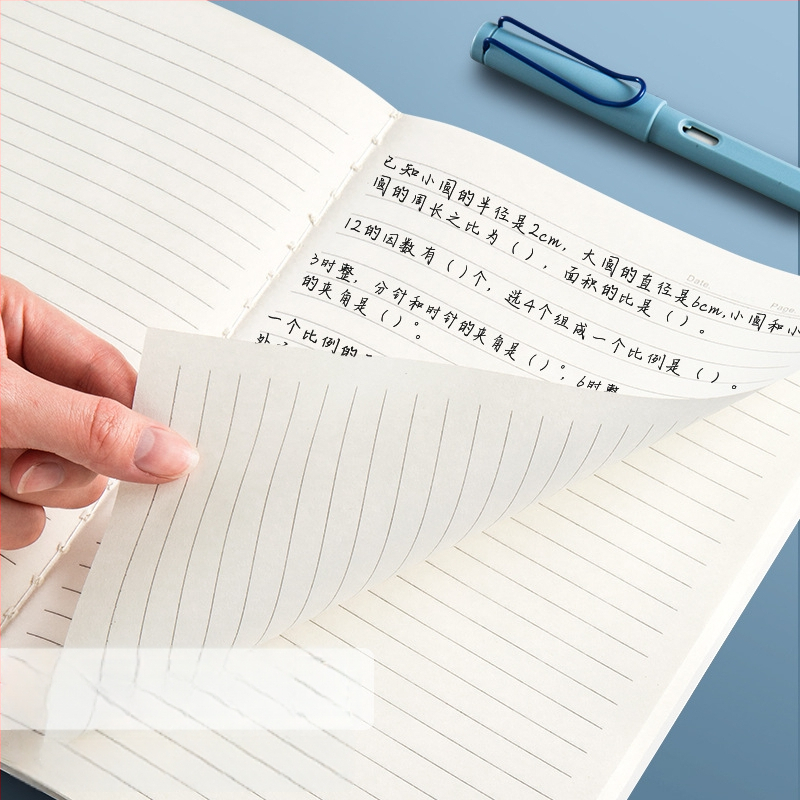 Date.
Page.
已知小圆的半径是2cm，大圆的直径是6cm，小圆和小
圆的周长之比为（），面积的比是（）。
12的因数有（）个，选4个组成一个比例是（）。
3时整，分针和时针的夹角是（）；6时整
的夹角是（）。
一个比例的
外